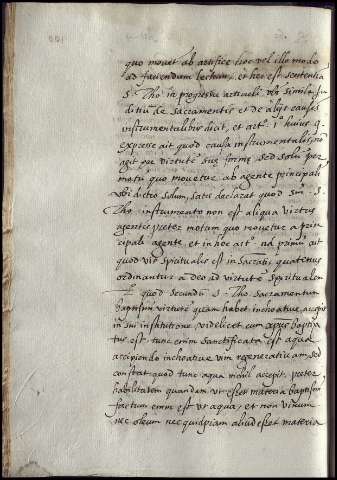 quo movet ab artifice hoc vel illo modo
ad faciendum lectum, et hec est sententia
S. Tho. in progressu articuli ubi similia
de sacramentis et de alijs causis
instrumentalibus dicit, et artº. 1º huius q.
expresse ait quod causa instrumentalis non
agit per virtutē suę formę sed solū per
motū quo movetur ab agente principali
ubi dictio solum, satis declarat quod sm̄. S.
Tho. instrumento non est aliqua virtus
agentis preter motum quo movetur a prin
cipali agente, et in hoc artº. ad primū ait
quod vis spiritualis est in sacrātis quatenus
ordinantur a deo ad virtutē spiritualem
quod secundū S. Tho. sacramentum
baptismi virtutē quam habet inchoative accepit
in sui institutione videlicet cum xp̄us baptiza
tus est tunc enim sanctificata est aqua
accipiendo inchoative vim regenerativam, sed
constat quod tunc aqua nichil accepit, preter
habilitatem quandam ut esset materia baptismi
factum enim est ut aqua, et non vinum
nec oleum nec quidpiam aliud esset materia